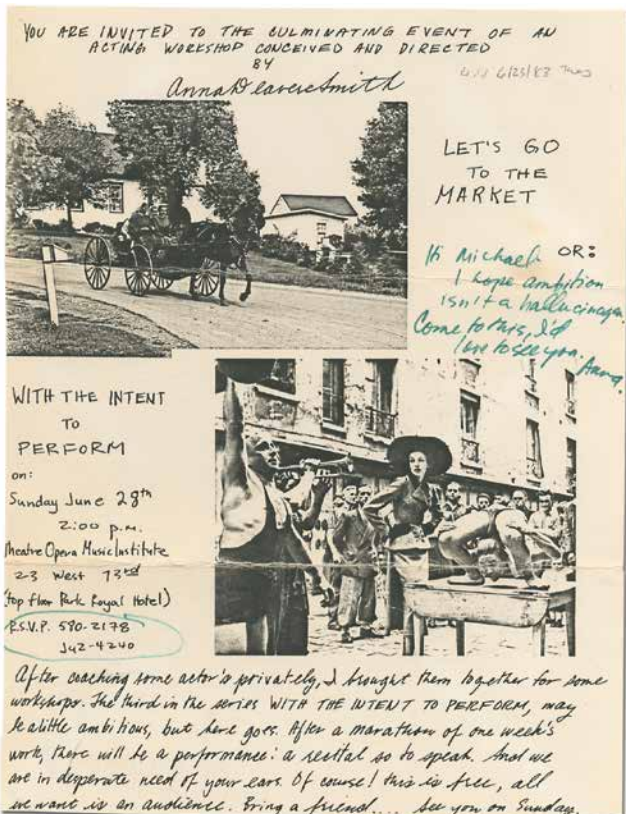 YOU ARE INVITED TO THE CULMINATING EVENT OF AN
ACTING WORKSHOP CONCEIVED AND DIRECTED
BY
Anna Deavere Smith
6/23/83
LET'S GO
TO THE
MARKET
OR:
Hi Michael
I hope ambition
isn't a hallucinogen.
Come to this, I'd
love to see you.
Anna.
WITH THE INTENT
TO
PERFORM
on:
Sunday June 28th
2:00 p.m.
Theatre Opera Music Institute
23 West 73rd
(top floor Park Royal Hotel)
R.S.V.P. 580-2178
JU2-4240
After coaching some actor's privately, I brought them together for some
workshops. The third in the series WITH THE INTENT TO PERFORM, may
be a little ambitious, but here goes. After a marathon of one week's
work, there will be a performance: a recital so to speak. And we
are in desperate need of your ears. Of course! this is free, all
we want is an audience. Bring a friend.... See you on Sunday.